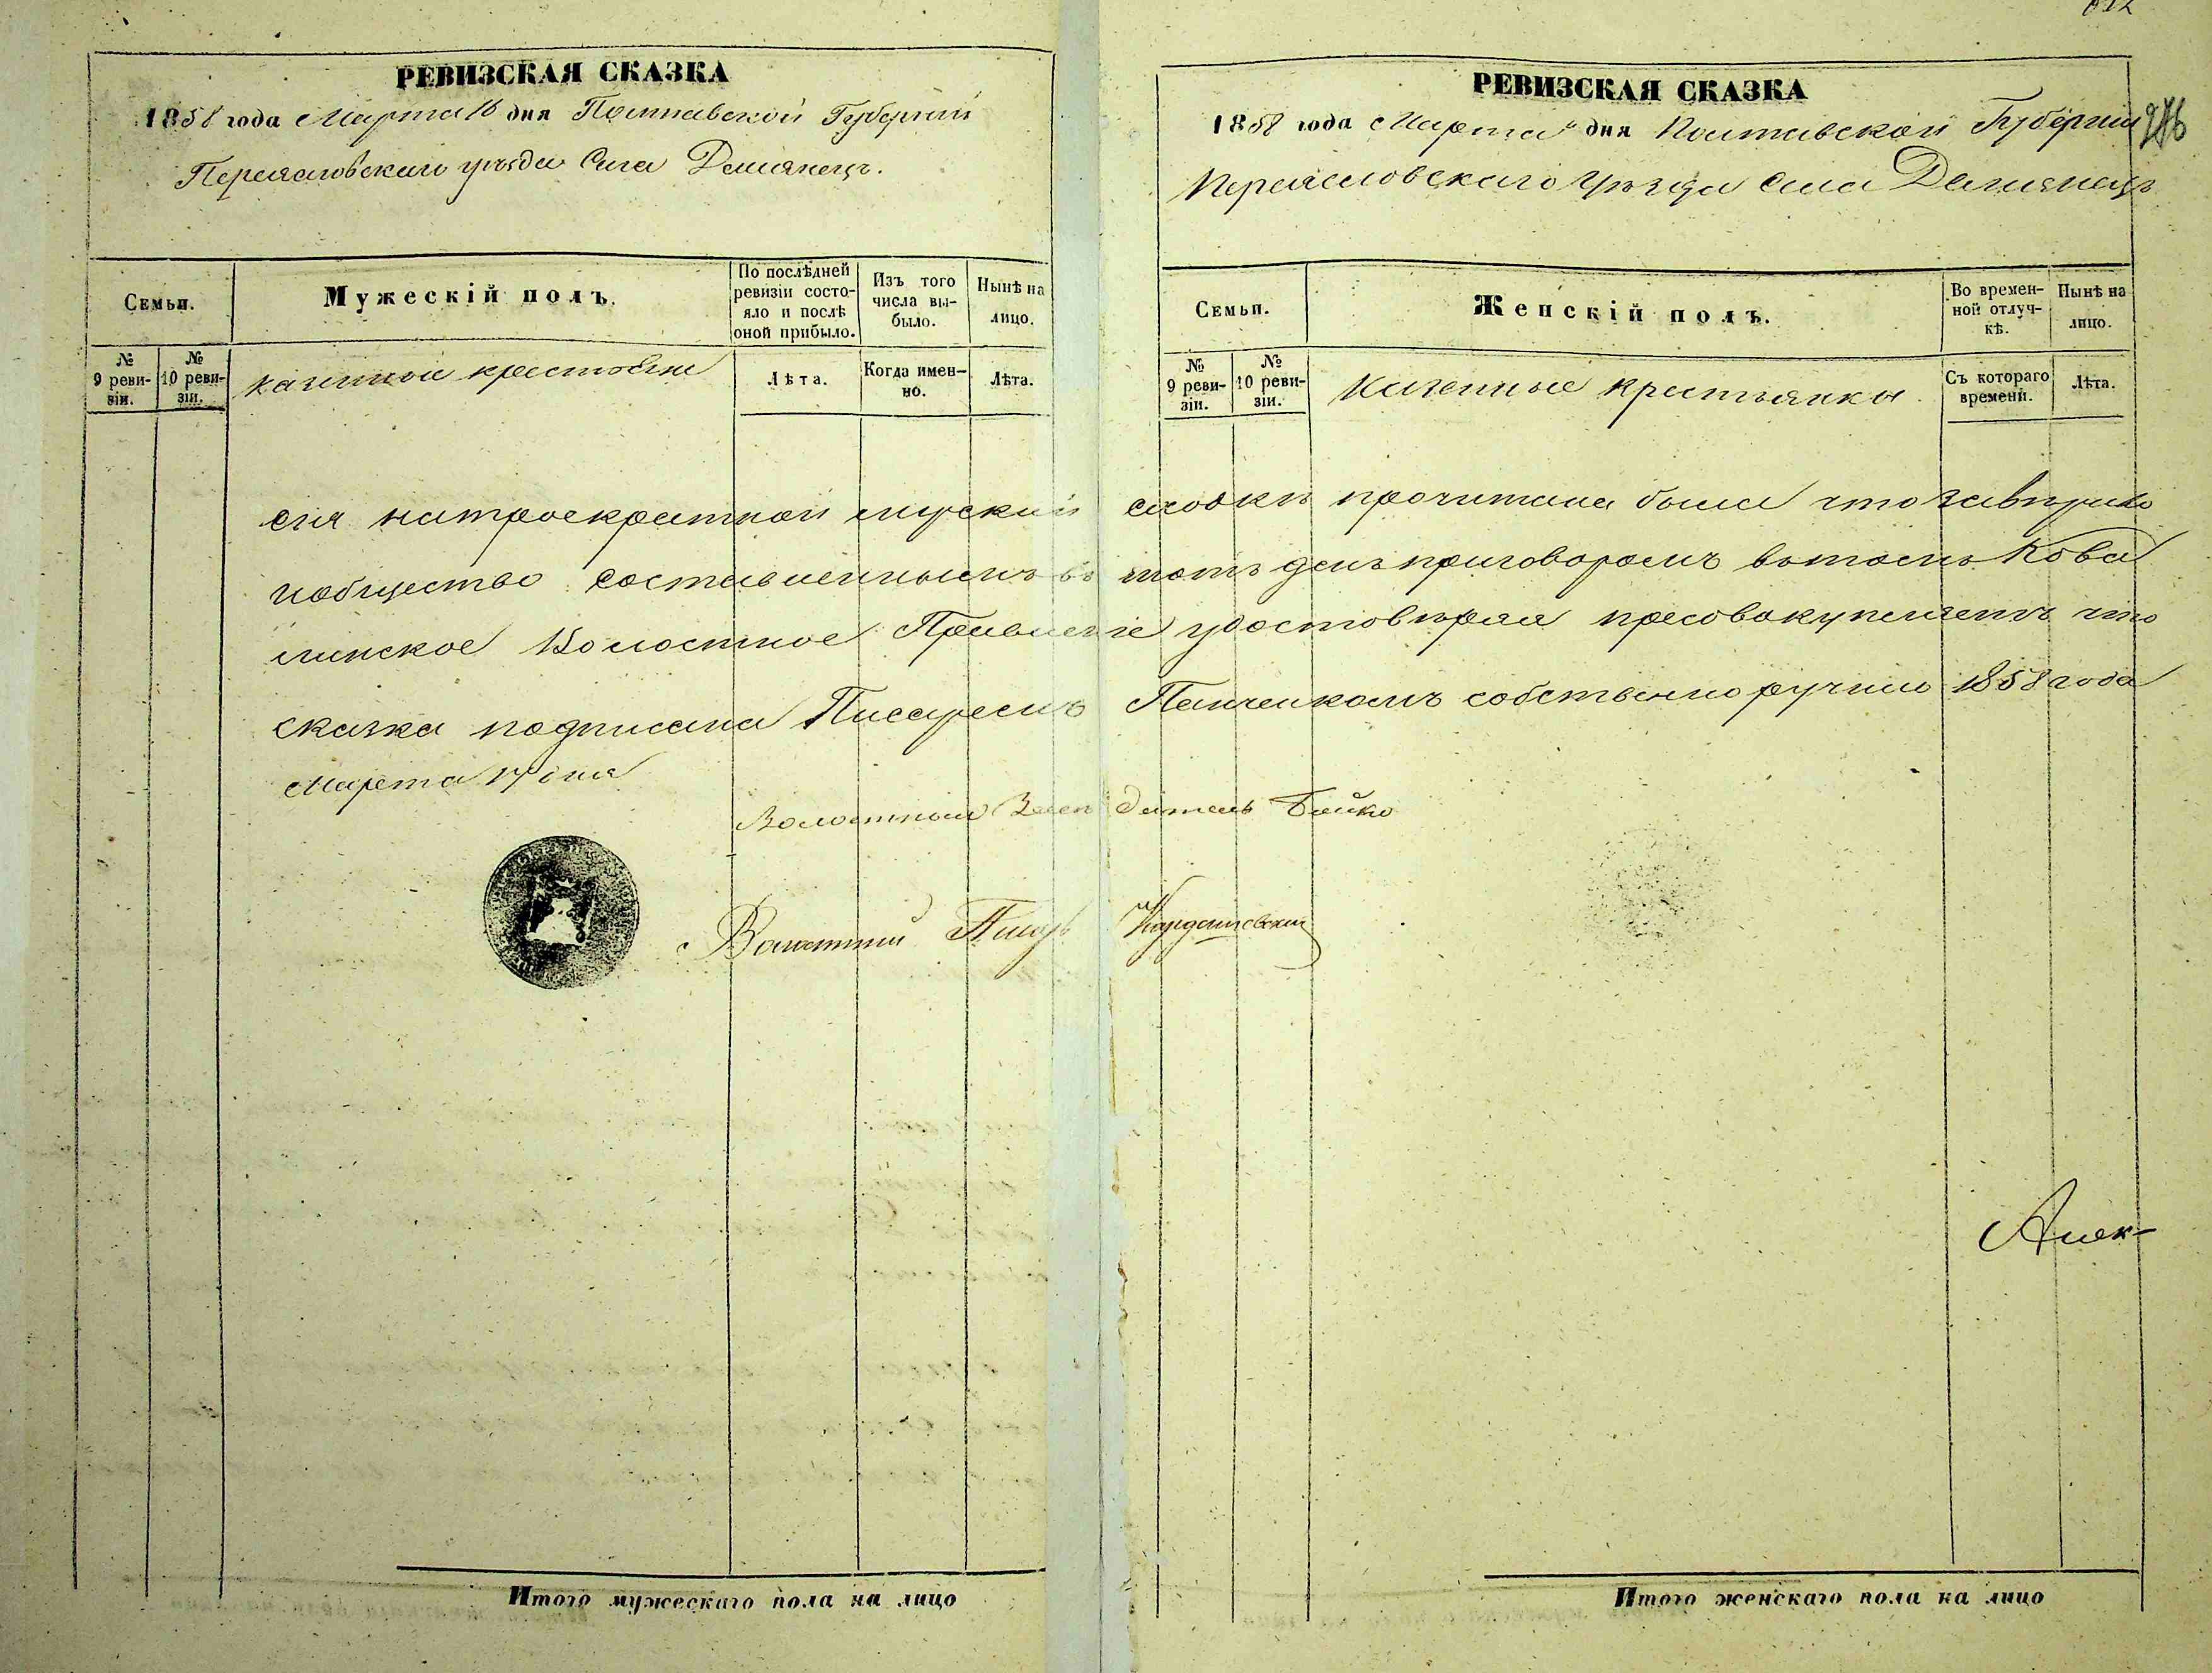 РЕВИЗСКАЯ СКАЗКА
1858 года Марта 16 дня Полтавской Губернии
Переясловскаго уѣзда Села Демянецъ.
Семьи.
Мужескій полъ.
По послѣдней ревизіи состояло и послѣ оной прибыло.
Изъ того числа выбыло.
Нынѣ на лицо.
№ 9 ревизіи.
№ 10 ревизіи.
казенные крестьяне
Лѣта.
Когда именно.
Лѣта.
РЕВИЗСКАЯ СКАЗКА
1858 года Марта дня Полтавской Губерніи
Переясловскаго Уѣзда Села Демянецъ
276
Семьи.
Женскій полъ.
Во временной отлучкѣ.
Нынѣ на лицо.
№ 9 ревизіи.
№ 10 ревизіи.
Казенные крестьянки.
Съ котораго времени.
Лѣта.
сія на троекратной мирской сходкѣ прочитана была что завѣрило
и общество составленнымъ въ тотъ день приговоромъ въ томъ Кова
линское Волостное Правленіе удостовѣряя присовокупляетъ что
сказка подписана Писаремъ Панченкомъ собственно ручно 1858 года
Марта 17 дня
Волостный Засѣдатель Бойко
Волостный Писарь
Алек-
Итого мужескаго пола на лицо
Итого женскаго пола на лицо